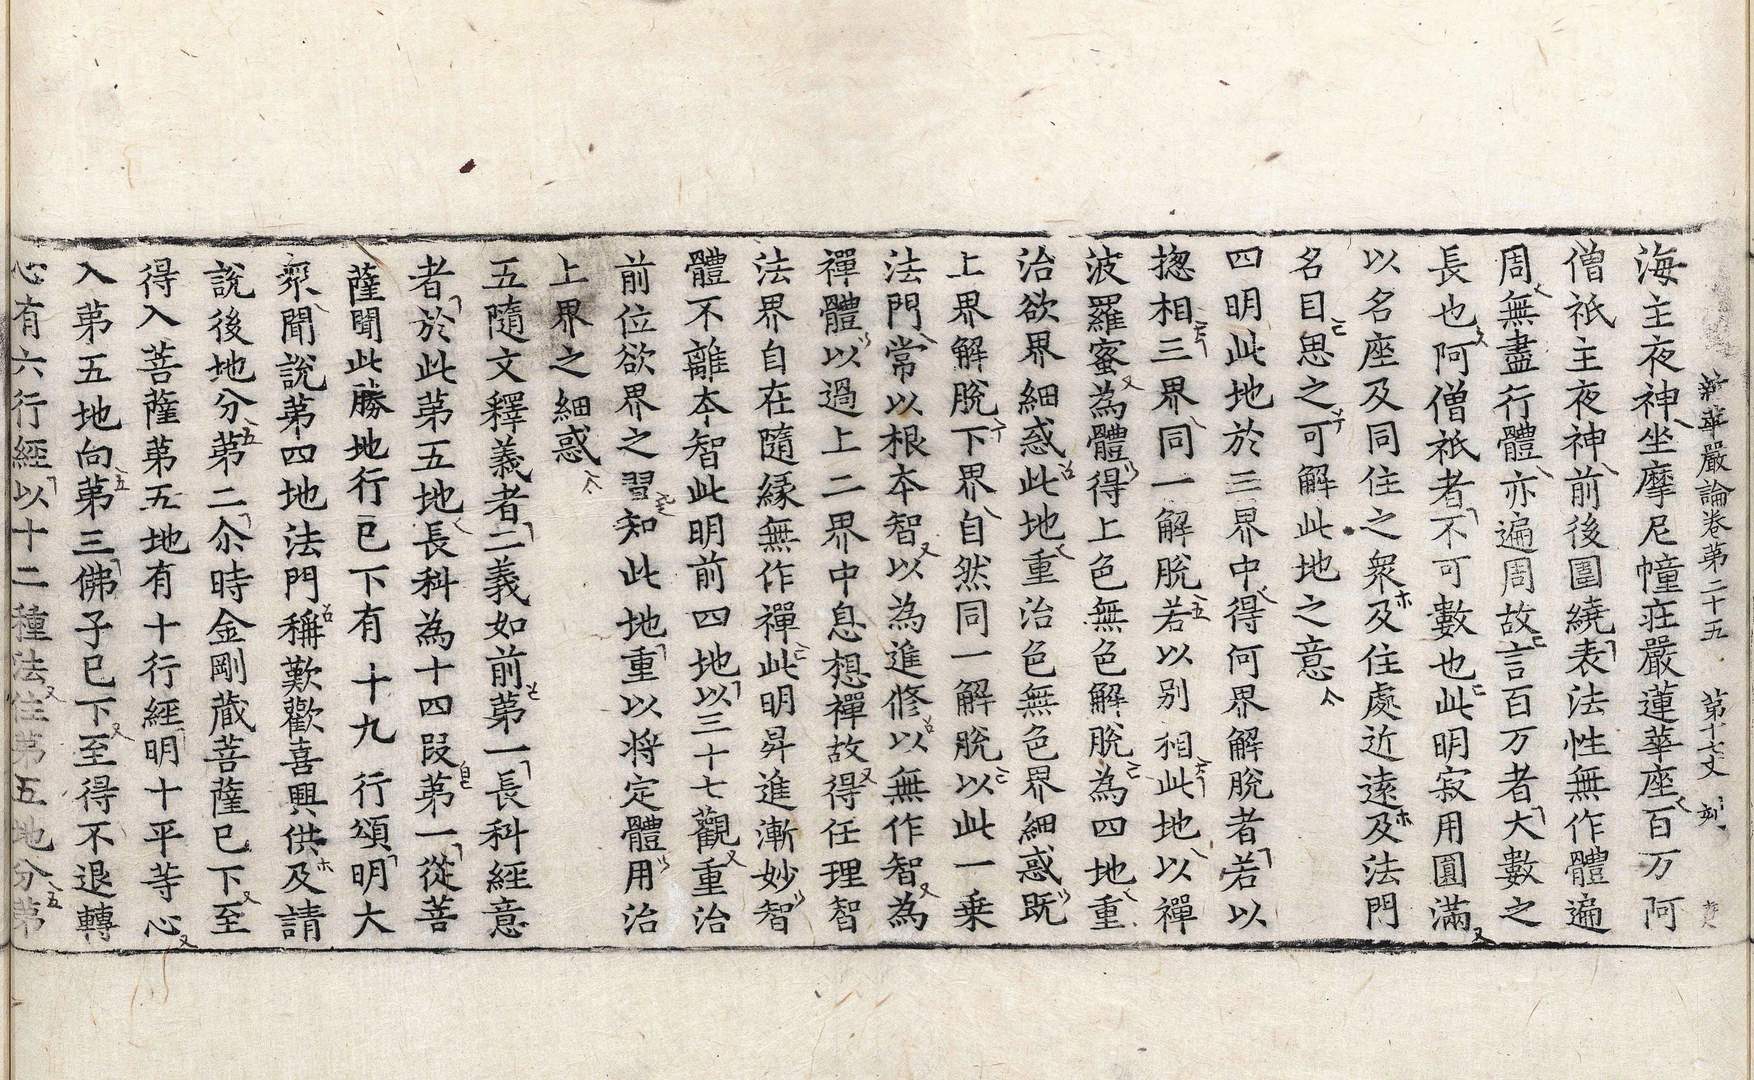 新華嚴論卷第二十五　第十七丈
海主夜神坐摩尼幢莊嚴蓮華座百万阿
僧祇主夜神前後圍繞表法性無作體遍
周無盡行體亦遍周故言百万者大數之
長也阿僧祇者不可數也此明寂用圓滿
以名座及同住之衆及住處近遠及法門
名目思之可解此地之意
四明此地於三界中得何界解脫者若以
揔相三界同一解脫若以別相此地以禪
波羅蜜為體得上色無色解脫為四地重
治欲界細惑此地重治色無色界細惑既
上界解脫下界自然同一解脫以此一乗
法門常以根本智以為進修以無作智為
禪體以過上二界中息想禪故得任理智
法界自在隨縁無作禪此明昇進漸妙智
體不離本智此明前四地以三十七觀重治
前位欲界之習知此地重以將定體用治
上界之細惑
五隨文釋義者二義如前第一長科經意
者於此第五地長科為十四段第一從菩
薩聞此勝地行已下有十九行頌明大
衆聞說第四地法門稱歎歡喜興供及請
說後地分第二尒時金剛藏菩薩已下至
得入菩薩第五地有十行經明十平等心
入第五地向第三佛子已下至得不退轉
心有六行經以十二種法住第五地分第